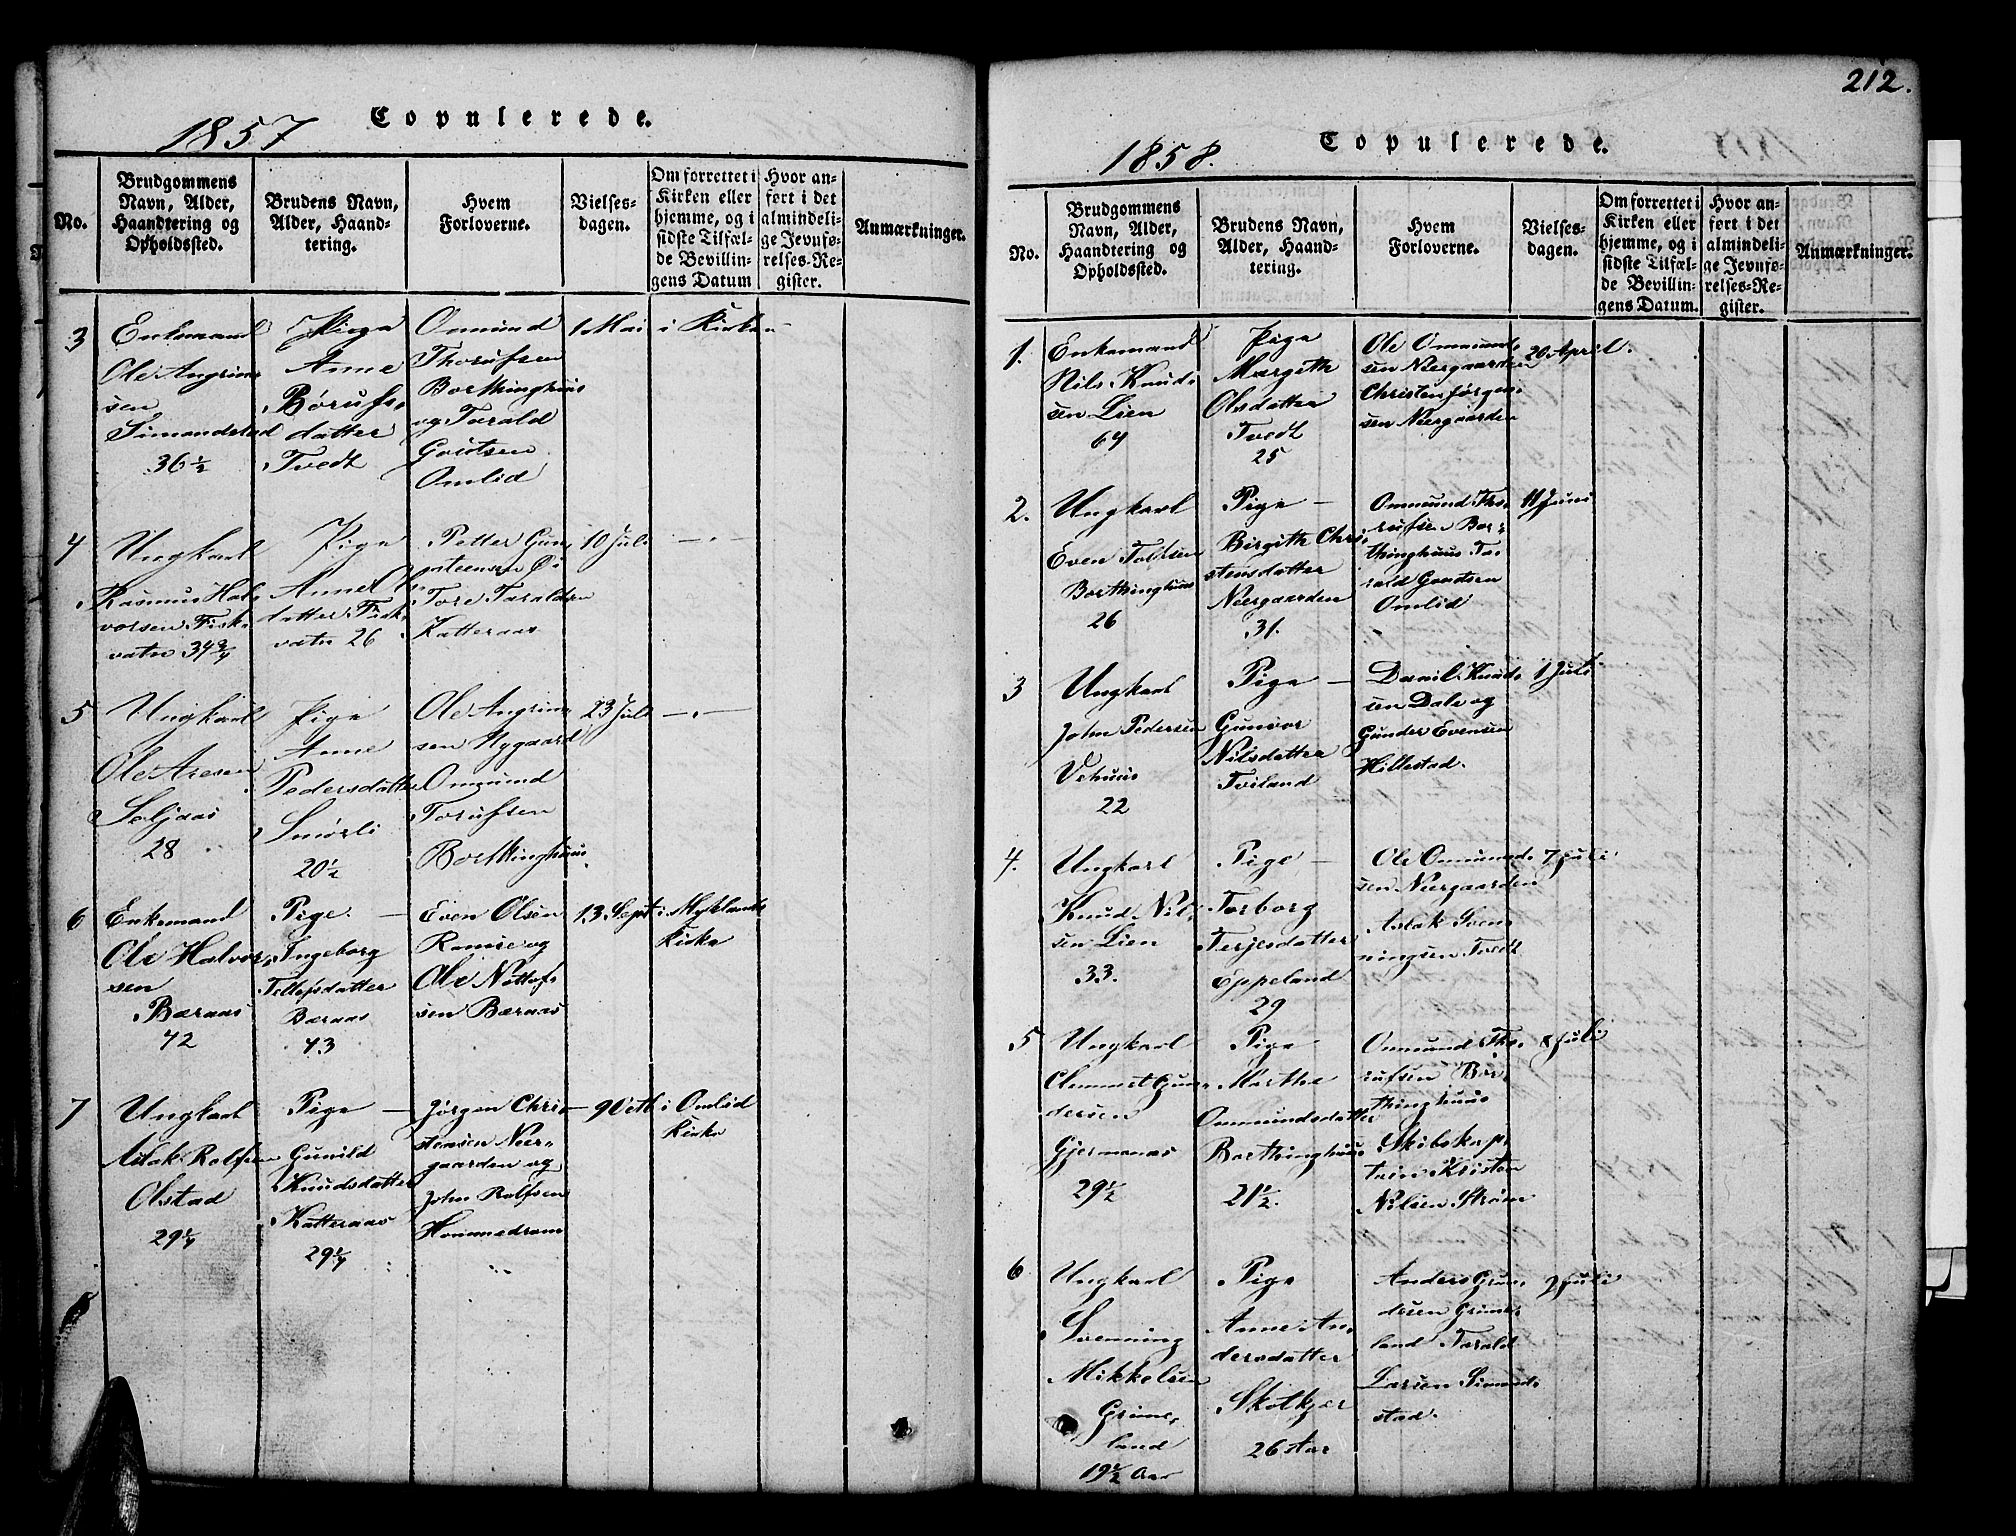 1857
Copulerede.
No.
Brudgommens
Navn, Alder,
Haandtering og
Opholdssted.
Brudens Navn,
Alder, Haand-
tering.
Hvem
Forloverne.
Vielses-
dagen.
Om forrettet i
Kirken eller
hjemme, og i
sidste Tilfæl-
de Bevillin-
gens Datum
Hvor an-
ført i det
almindeli-
ge Jevnfø-
relses-Re-
gister.
Anmærkninger.
3
Enkemand
Ole Angrim
sen
Simonstad
36 1/2
Pige
Anne
Børufs
datter
Tvedt
Omund
Thorufsen
Borthinghuus
og Tarald
Goutsen
Omlid
1 Mai
i Kirken
4
Ungkarl
Rasmus Hal
vorsen Fisk
vatn 34 3/4
Pige
Anne
datter Fisk
vatn 26
Petter Gun
steensen
Tore Taraldsen
Katteraas
10 Juli
— " —
5
Ungkarl
Ole Aresen
Seljaas
28
Pige
Anne
Pedersdatter
Smørli
20 1/2
Ole Angrim
sen Nygaard
Omund
Torufsen
Borthinghuus
23 Juli
— " —
6
Enkemand
Ole Halvor
sen
Baraas
72
Pige —
Ingeborg
Tellefsdatter
Baraas
43
Even Olsen
Ramse og
Ole Nottof
sen Bæraas
13 Sept
i Myklands
Kirke
7
Ungkarl
Aslak Rolfsen
Olstad
29 1/4
Pige —
Gunild
Knudsdatter
Katteraas
29 1/4
Jørgen Chri
stensen Neer-
gaarden og
John Rolfsen
Hommedram
9 Octb
i Omlid
Kirke
212.
1858.
Copulerede.
No.
Brudgommens
Navn, Alder,
Haandtering og
Opholdssted.
Brudens Navn,
Alder, Haand-
tering.
Hvem
Forloverne.
Vielses-
dagen.
Om forrettet i
Kirken eller
hjemme, og i
sidste Tilfæl-
de Bevillin-
gens Datum.
Hvor an-
ført i det
almindeli-
ge Jevnfø-
relses-Re-
gister.
Anmærkninger.
1.
Enkemand
Nils Knud
sen Lien
64
Pige
Margith
Olsdatter
Tvedt
25
Ole Omund
sen Neergaarden
Christen Jørgen
sen Neergaarden
20 April.
2.
Ungkarl
Even Tolfsen
Borthinghuus
26
Pige —
Birgith Chri
stensdatter
Neergaarden
31.
Ommund Tho
rufsen Bor
thinghuus Ta
rald Goutsen
Omlid
11 Juni
3
Ungkarl
John Pedersen
Vehuus
22
Pige —
Gunvor
Nilsdatter
Tviland
Daniel Knud
sen Dale og
Gunder Evensen
Hillestad.
1 Juli
4.
Ungkarl
Knud Nil
sen Lien
33.
Pige —
Torborg
Terjesdatter
Eppeland
29
Ole Omund
sen Neergaarden
Aslak Sven
ningsen Tvedt
7 Juli
5
Ungkarl
Clemmet Gun
dersen
Gjermanas
29 1/2
Pige
Marthe
Ommundsdatter
Borthinghuus
21 1/2.
Ommund Tho
rufsen Bor
thinghuus
Skibskap
tein Kristen
Nilsen Strøm
8 Juli
6
Ungkarl
Svenning
Mikkelsen
Grime,
land
19 1/2 Aar
Pige
Anne An
dersdatter
Skolkjer
26 Aar
Anders Gun
dersen Grime
land Tarald
Larsen Simond
stad.
2 Juli